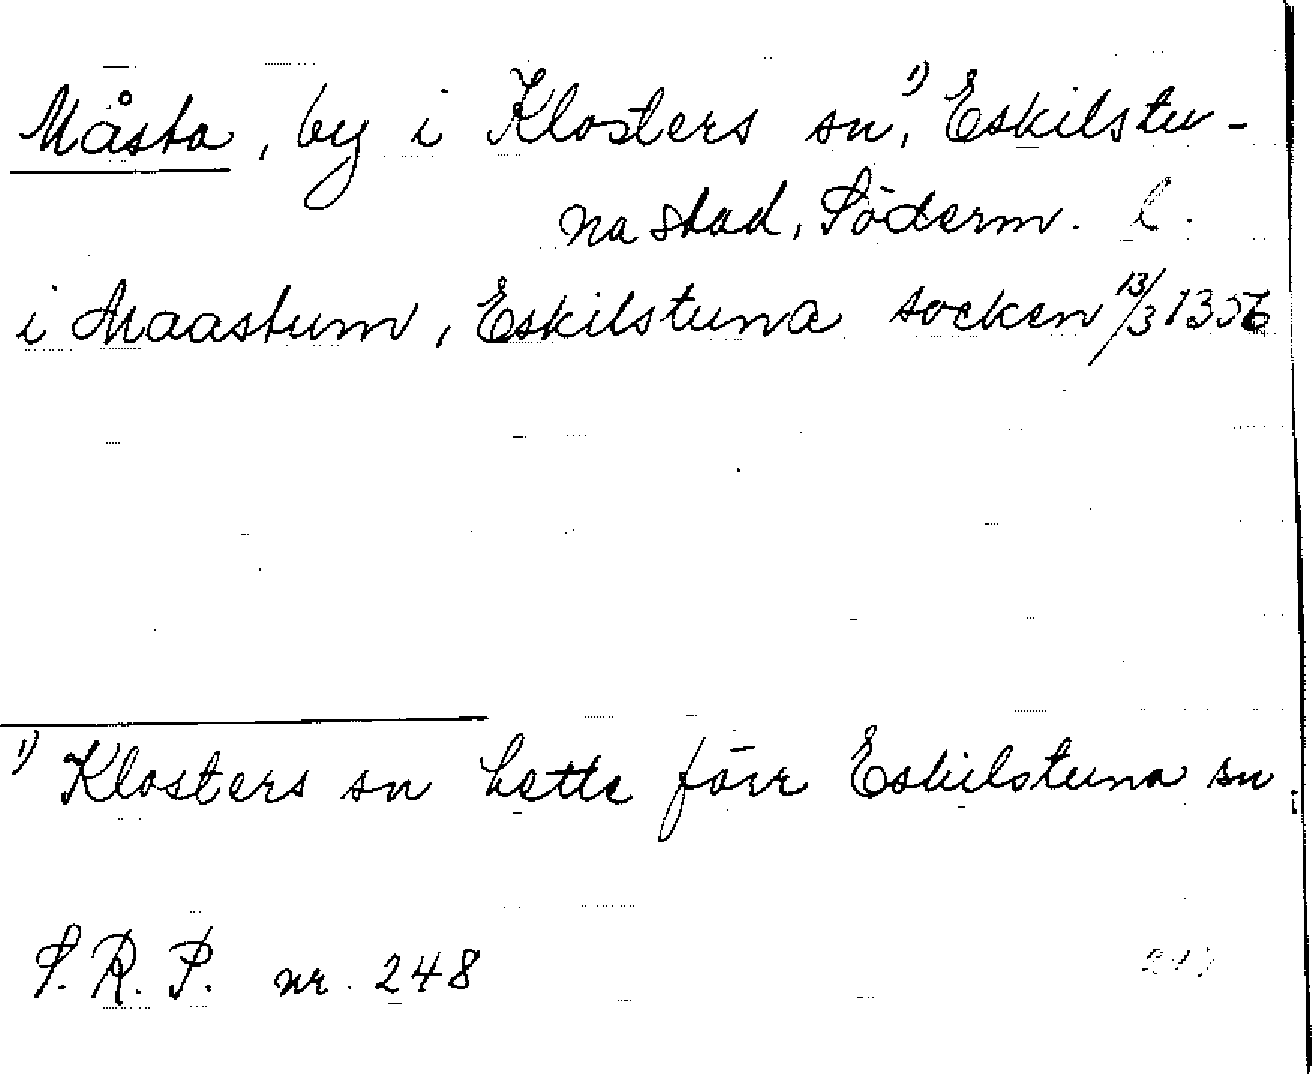 Måsta, by i Klosters sn,¹⁾ Eskilstu-
na stad, Söderm. l.
i Maastum, Eskilstuna socken 13/3 1356
¹⁾ Klosters sn hette förr Eskilstuna sn.
S.R.P. nr. 248